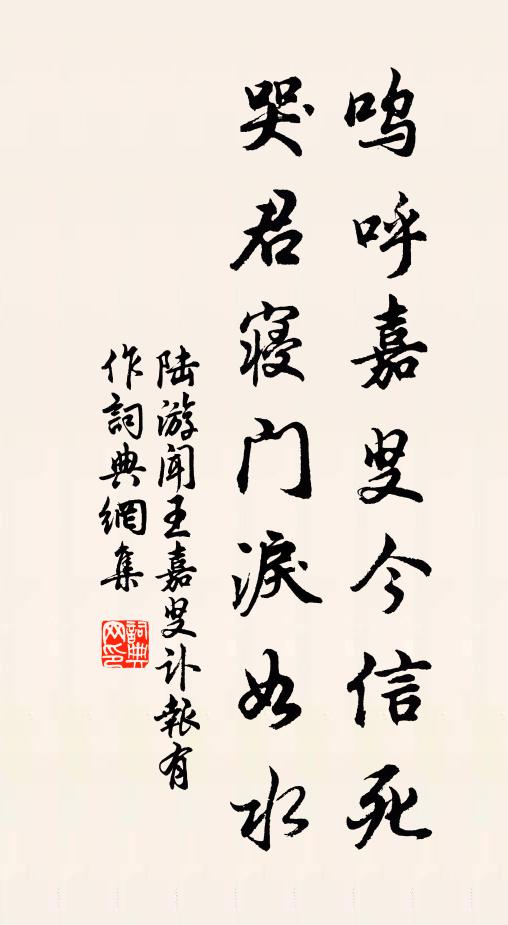 呜呼嘉叟今信死
哭君寝门淚如水
陆游闻王嘉叟讣報有
作詞典網集
詞典网印